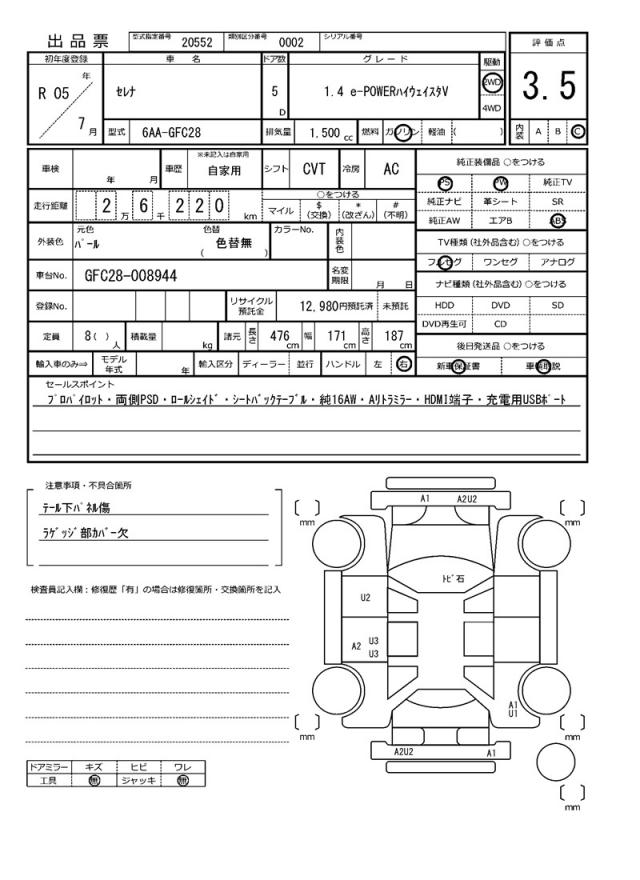 出品票 型式指定番号 20552 類別区分番号 0002 シリアル番号
評価点
3.5
初年度登録 車名 ドア数 グレード 駆動
R 05 年 7 月 セレナ 5 D 1.4 e-POWERハイウェイスタV 2WD 4WD
型式 6AA-GFC28 排気量 1.500 cc 燃料 ガソリン 軽油 ( ) 内装 A B C
車検 年 月 車歴 ※未記入は自家用 自家用 シフト CVT 冷房 AC
走行距離 2 万 6 千 2 2 0 km ○をつける
マイル $(交換) *(改ざん) #(不明)
外装色 元色 パール 色替 色替無 ( ) カラーNo. 内装色
車台No. GFC28-008944 名変期限 月 日
登録No. リサイクル預託金 12,980円預託済 未預託
定員 8( ) 人 積載量 kg 諸元 長さ 476 cm 幅 171 cm 高さ 187 cm
輸入車のみ⇒ モデル年式 年 輸入区分 ディーラー 並行 ハンドル 左 右
純正装備品 ○をつける
PS PW 純正TV
純正ナビ 革シート SR
純正AW エアB ABS
TV種類 (社外品含む) ○をつける
フルセグ ワンセグ アナログ
ナビ種類 (社外品含む) ○をつける
HDD DVD SD
DVD再生可 CD
後日発送品 ○をつける
新車保証書 車輌取説
セールスポイント
プロパイロット・両側PSD・ロールシェイド・シートバックテーブル・純16AW・Aリトラミラー・HDMI端子・充電用USBポート
注意事項・不具合箇所
テール下パネル傷
ラゲッジ部カバー欠
検査員記入欄：修復歴「有」の場合は修復箇所・交換箇所を記入
ドアミラー キズ ヒビ ワレ
工具 無 ジャッキ 無
A1 A2U2
mm mm
トビ石
U2
A2 U3
U3
A1
U1
mm mm
A2U2 A1
mm